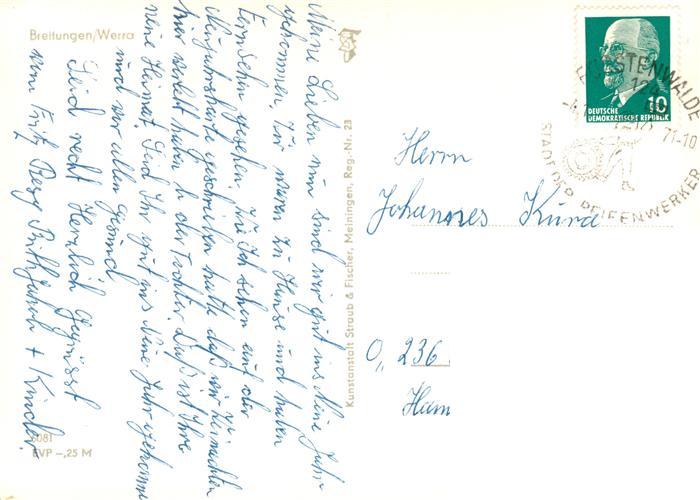 Breitungen/Werra
Meine Lieben nun sind wir gut ins Neue Jahr
gekommen, wir waren zu Hause und haben
Fernsehen gesehen. Wie Ich schon auf der
Neujahrskarte geschrieben hatte das wir zu Weinachten
hier verlebt haben b. der Tochter. Das ist Ihre
neue Heimat. Seid Ihr gut ins Neue Jahr gekommen
und vor allen gesund
Seid recht Herzlich Gegrüsst
von Fritz Berg
+ Kinder.
6081
EVP -,25 M
Kunstanstalt Straub & Fischer, Meiningen, Reg.-Nr. 23
DEUTSCHE
DEMOKRATISCHE REPUBLIK
10
FÜRSTENWALDE
71-10
STADT DER REIFENWERKER
Herrn
Johannes
O,, 236
Ham